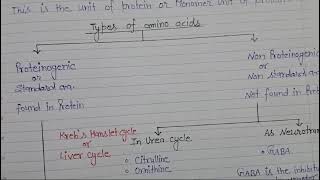 This is the unit of protein or Monomer unit of
Types of amino acids
Proteinogenic
or
Standard a.a.
found in Protein
Non Proteinogenic
or
Non standard
Not found in
Kreb's Hanslet cycle
or
Liver cycle
In Urea cycle
Citrulline
Ornithine
As
GABA
GABA is the